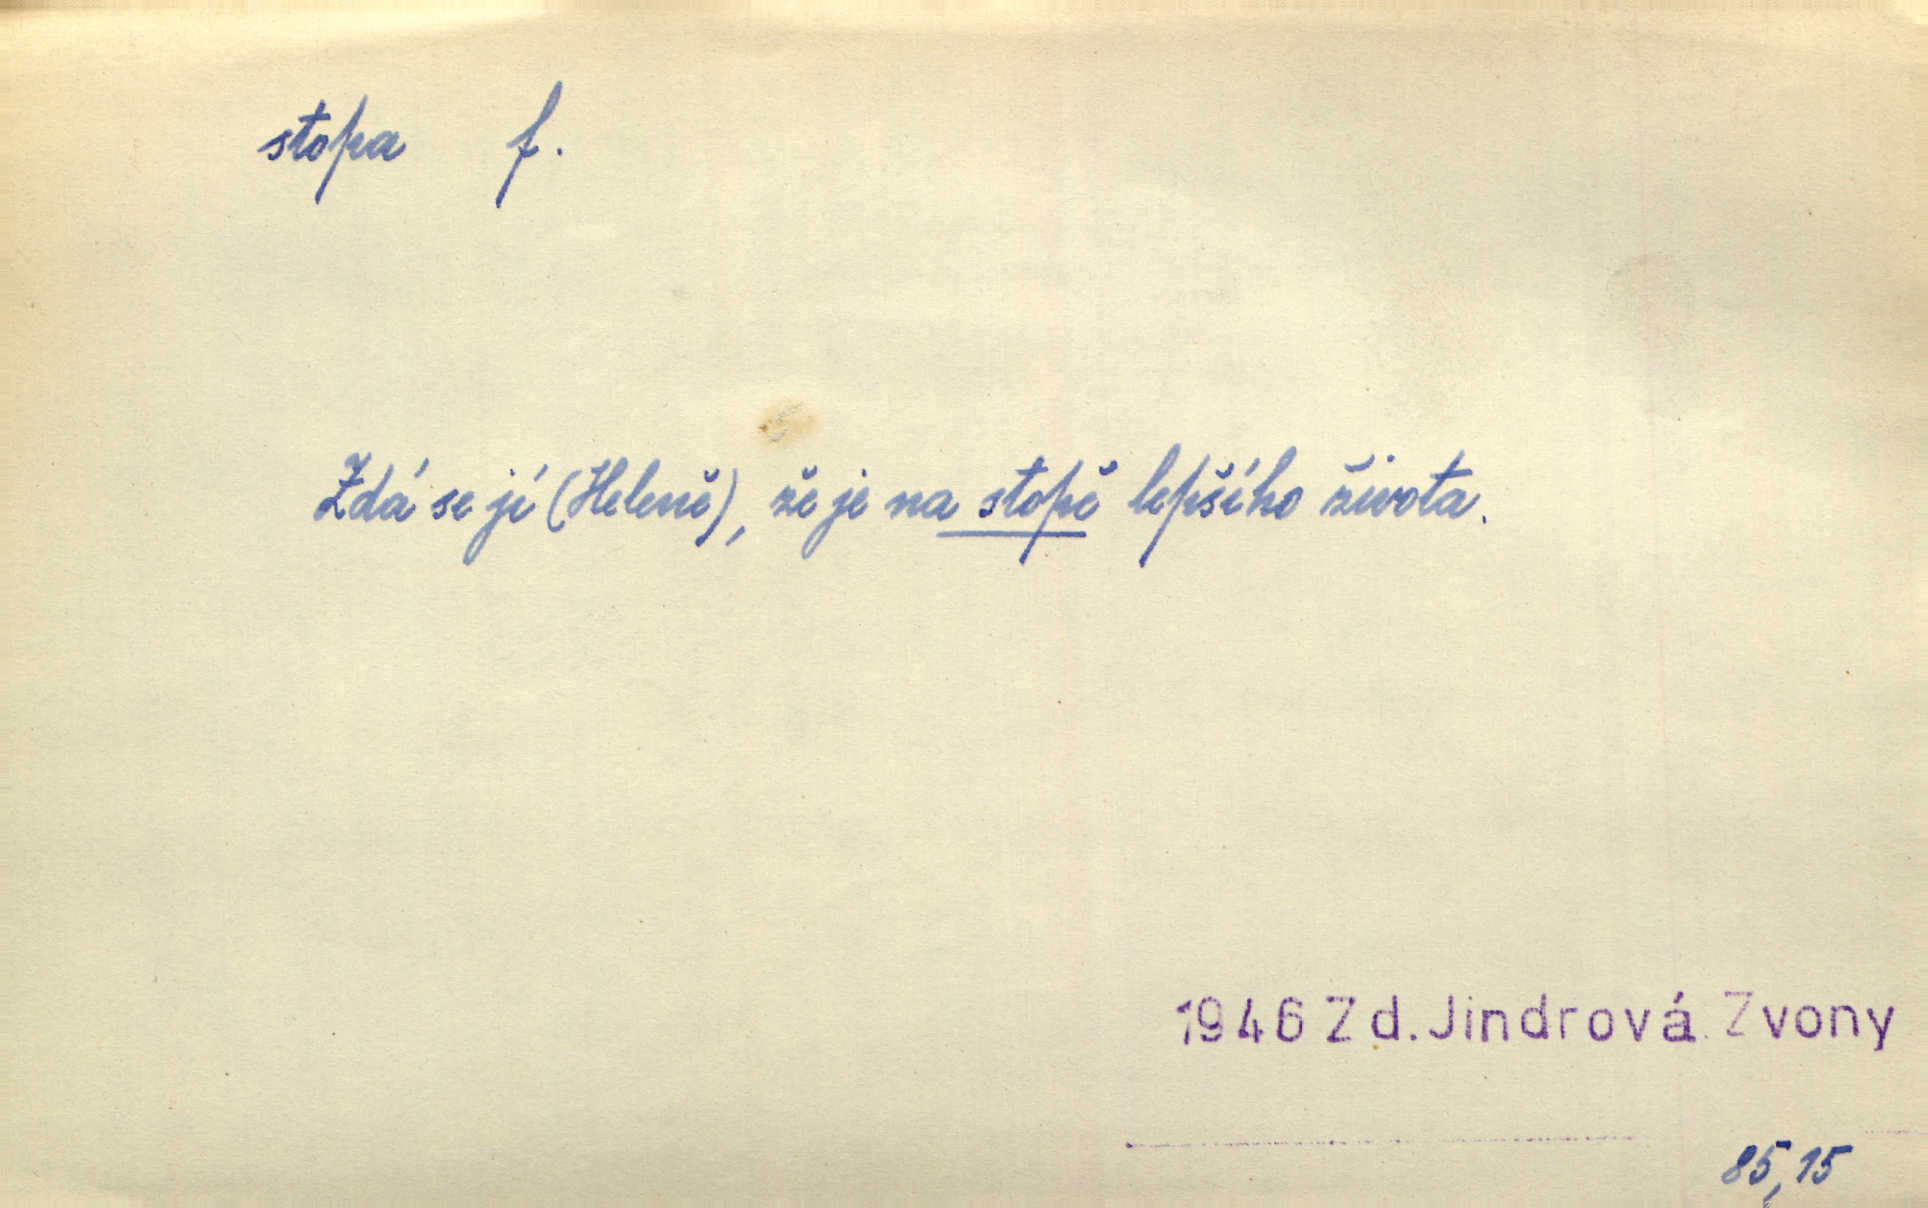 stopa f.
Zdá se jí (Heleně), že je na stopě lepšího života.
1946 Zd. Jindrová Zvony
85,15